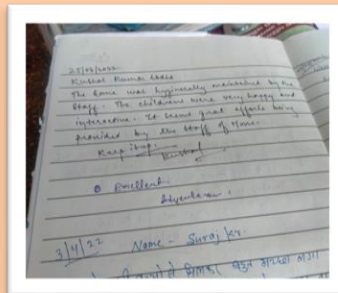 Kushal Kumar
The home was hygienically maintained by the
staff. The childrens were very happy and
interactive. It seems great efforts being
provided by the staff of Home.
Keep it up.
Kushal
Excellent
3/4/22 Name - Suraj Kr.
से मिलकर बहुत अच्छा लगा